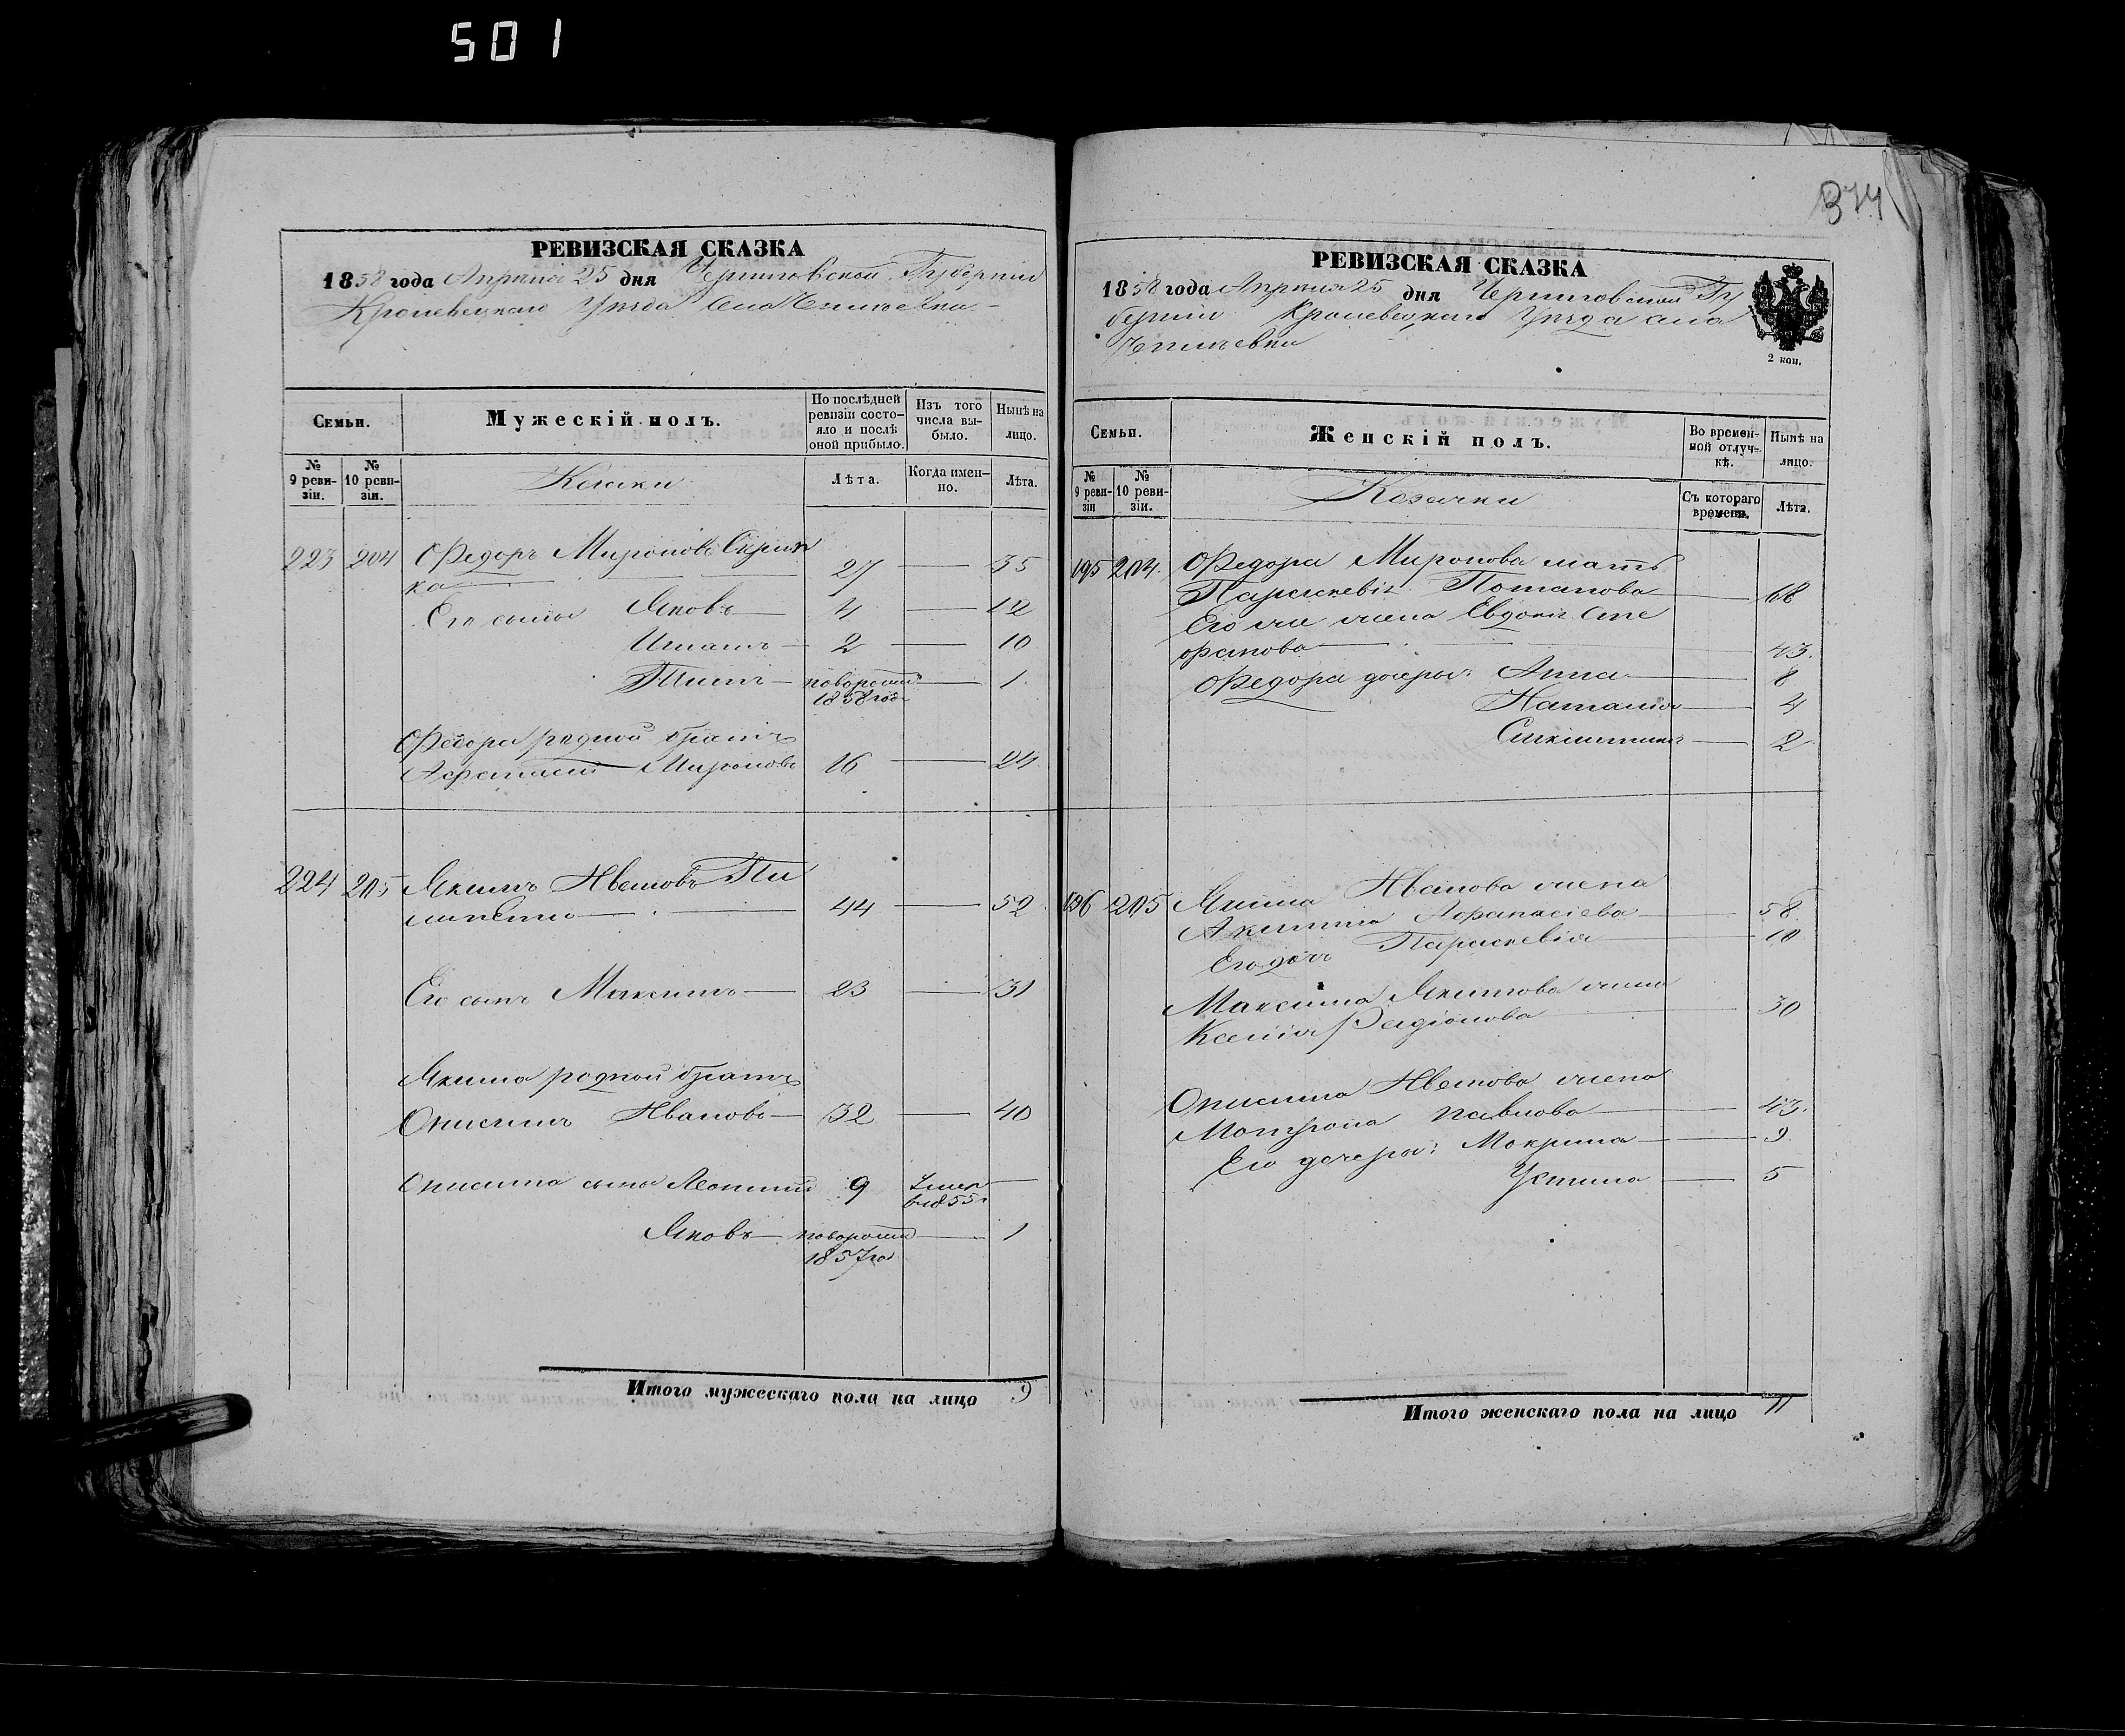 501
374
РЕВИЗСКАЯ СКАЗКА
1858 года Апреля 25 дня Черниговской Губерніи
Кролевецкаго Уѣзда Села
Семьи.
Мужескій полъ.
По послѣдней ревизіи состояло и послѣ оной прибыло.
Изъ того числа выбыло.
Нынѣ на лицо.
№ 9 ревизіи.
№ 10 ревизіи.
Козаки
Лѣта.
Когда именно.
Лѣта.
223 204 Федоръ Мироновъ Скрип
ка 27 35
Его сыны Яковъ 4 12
Игнатъ 2 10
новорожд 1
1858 год
Федора родной братъ
Афанасій Мироновъ 16 24
224 205 Якимъ Ивановъ Пи
липенко 44 52
Его сынъ Максимъ 23 31
Якима родной братъ
Онисимъ Ивановъ 32 40
Онисима сыны Леонтій 9 Умер
в 1855
Яковъ новорожд 1
1857 го
Итого мужескаго пола на лицо 9
РЕВИЗСКАЯ СКАЗКА
1858 года Апреля 25 дня Черниговской Гу
берніи Кролевецкаго Уѣзда села
2 коп.
Семьи.
Женскій полъ.
Во временной отлучкѣ.
Нынѣ на лицо.
№ 9 ревизіи
№ 10 ревизіи.
Козачки
Съ котораго времени.
Лѣта.
195 204 Федора Миронова мать
Параскевія Потапова 68
Его же жена Евдокія Сте
фанова 43
Федора дочери: Анна 8
Наталія 4
2
196 205 Якима Иванова жена
Акилина Афанасіева 58
Его дочь Параскевія 10
Максима Якимова жена
Ксенія Радіонова 30
Онисима Иванова жена
Мотрона Павлова 43
Его дочери: Макрина 9
Устина 5
Итого женскаго пола на лицо 11